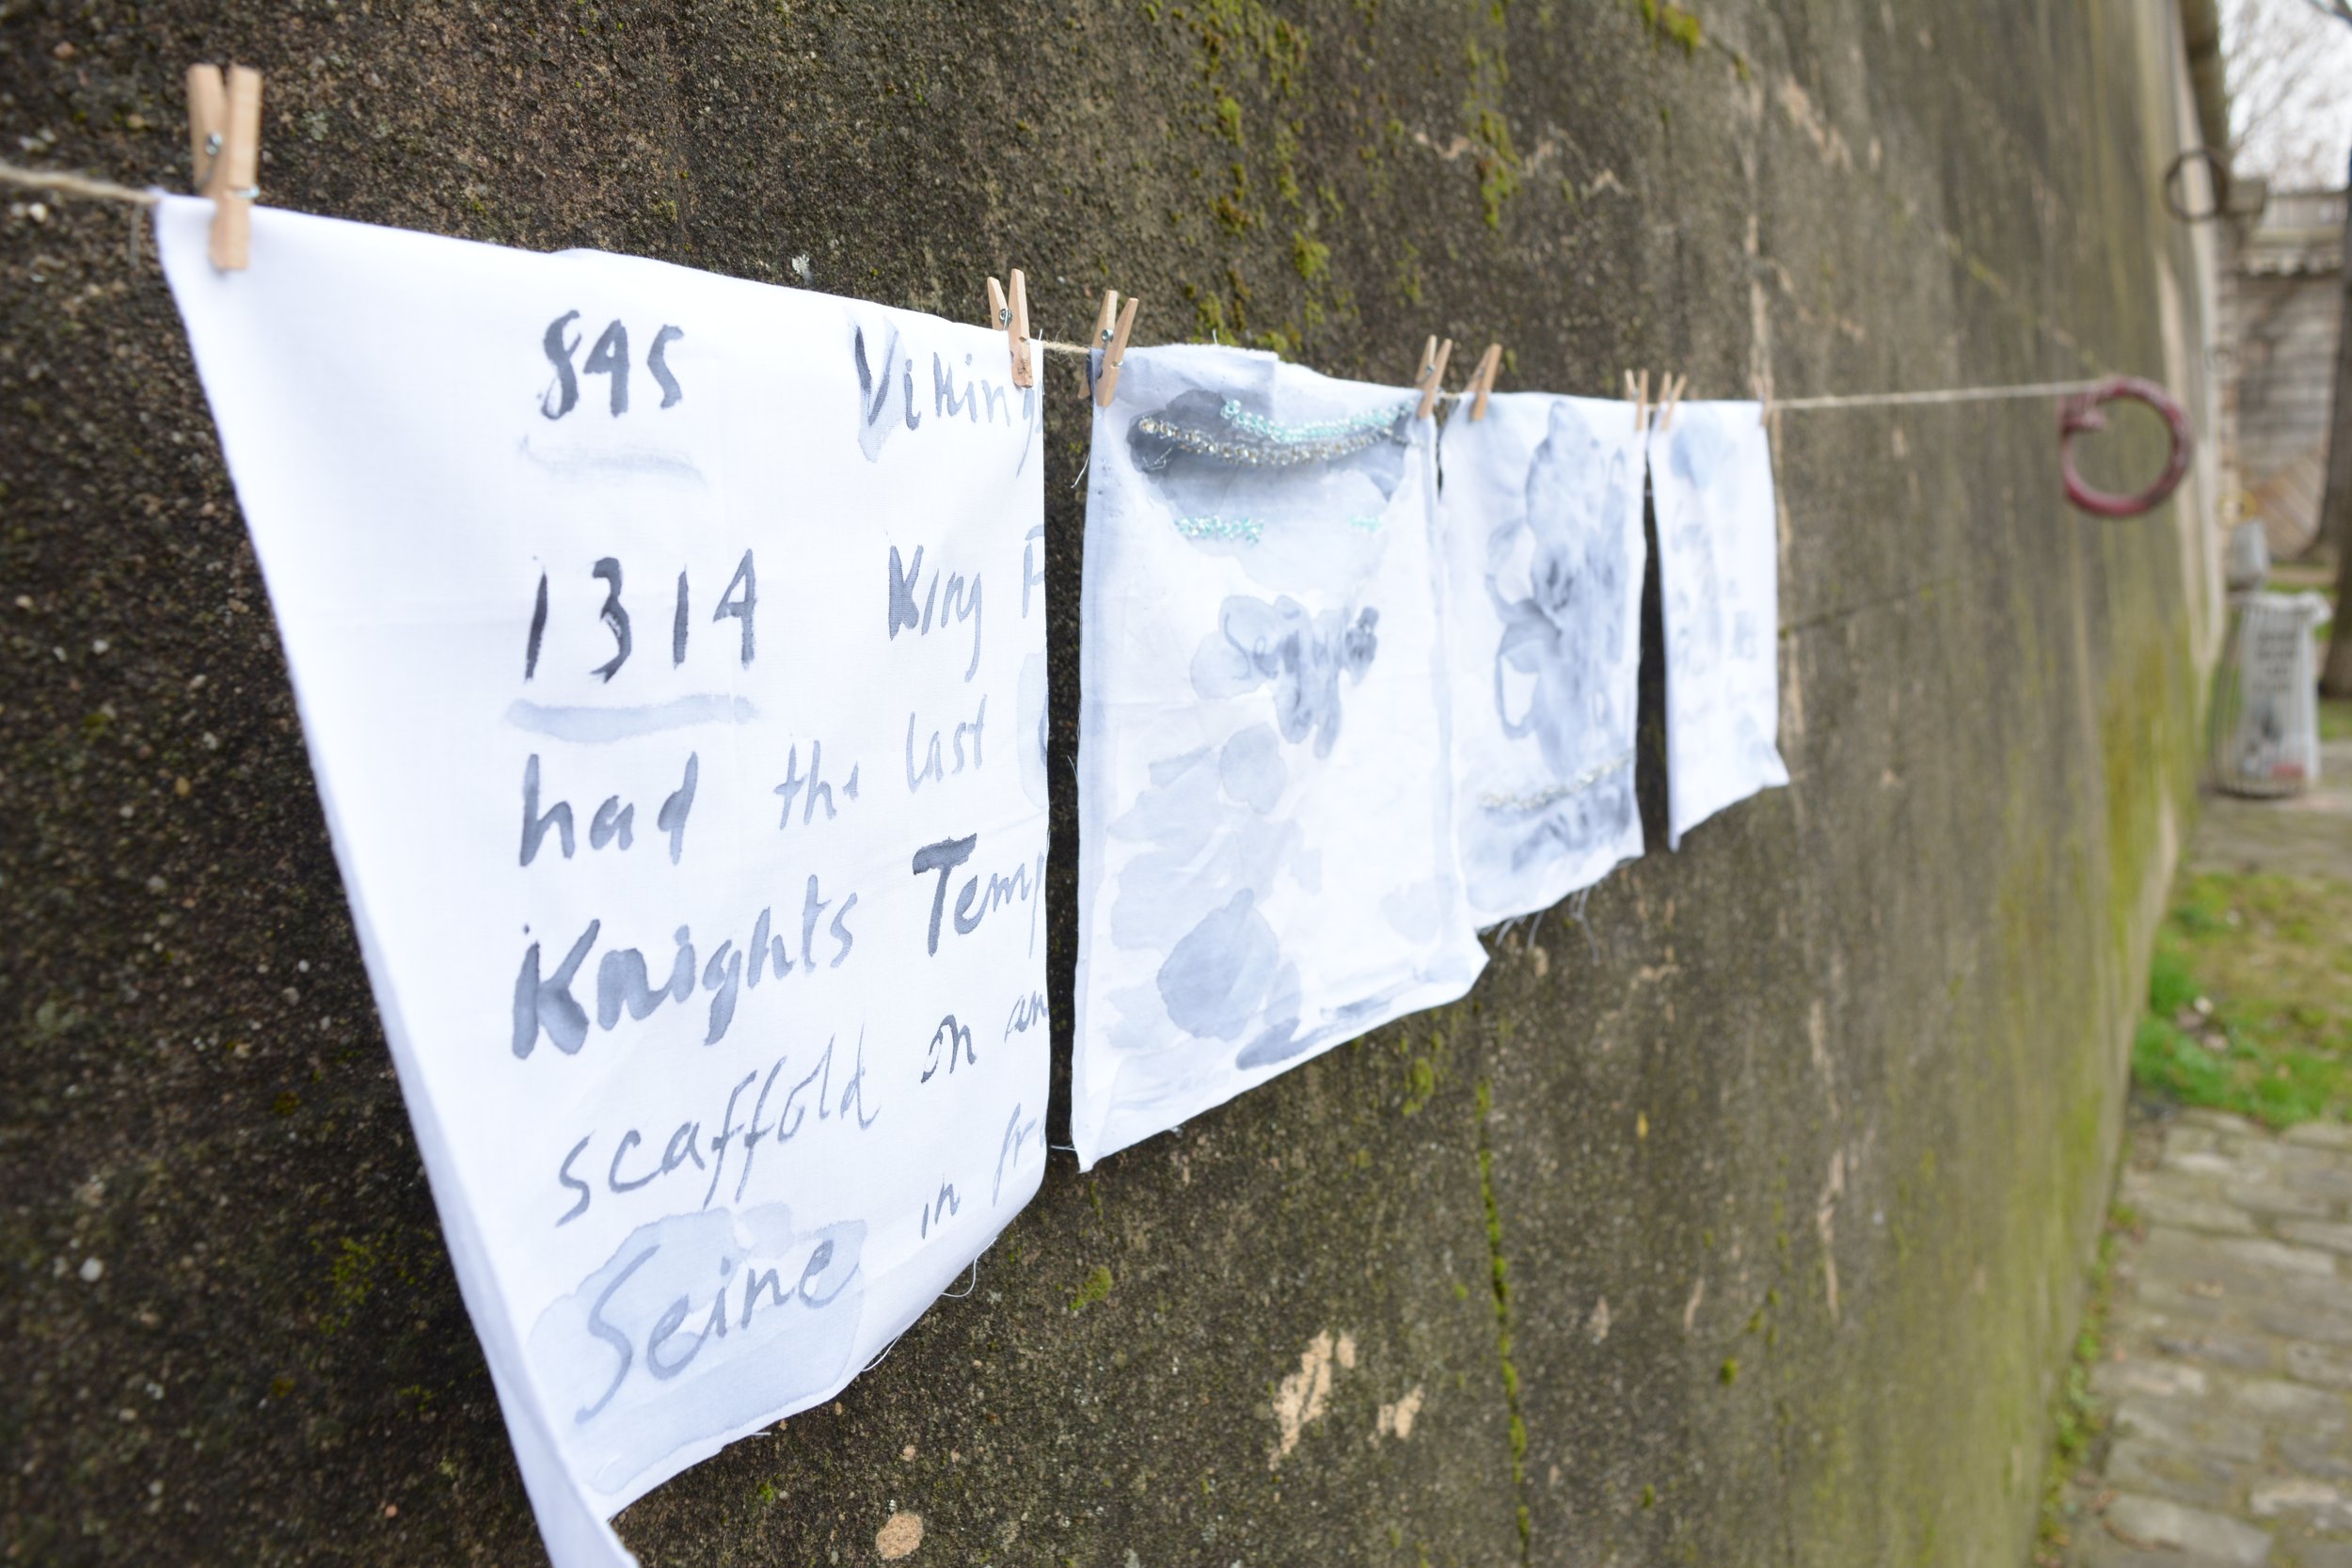 845 Viking
1314 King
had the last
Knights Temp
scaffold on an
Seine in